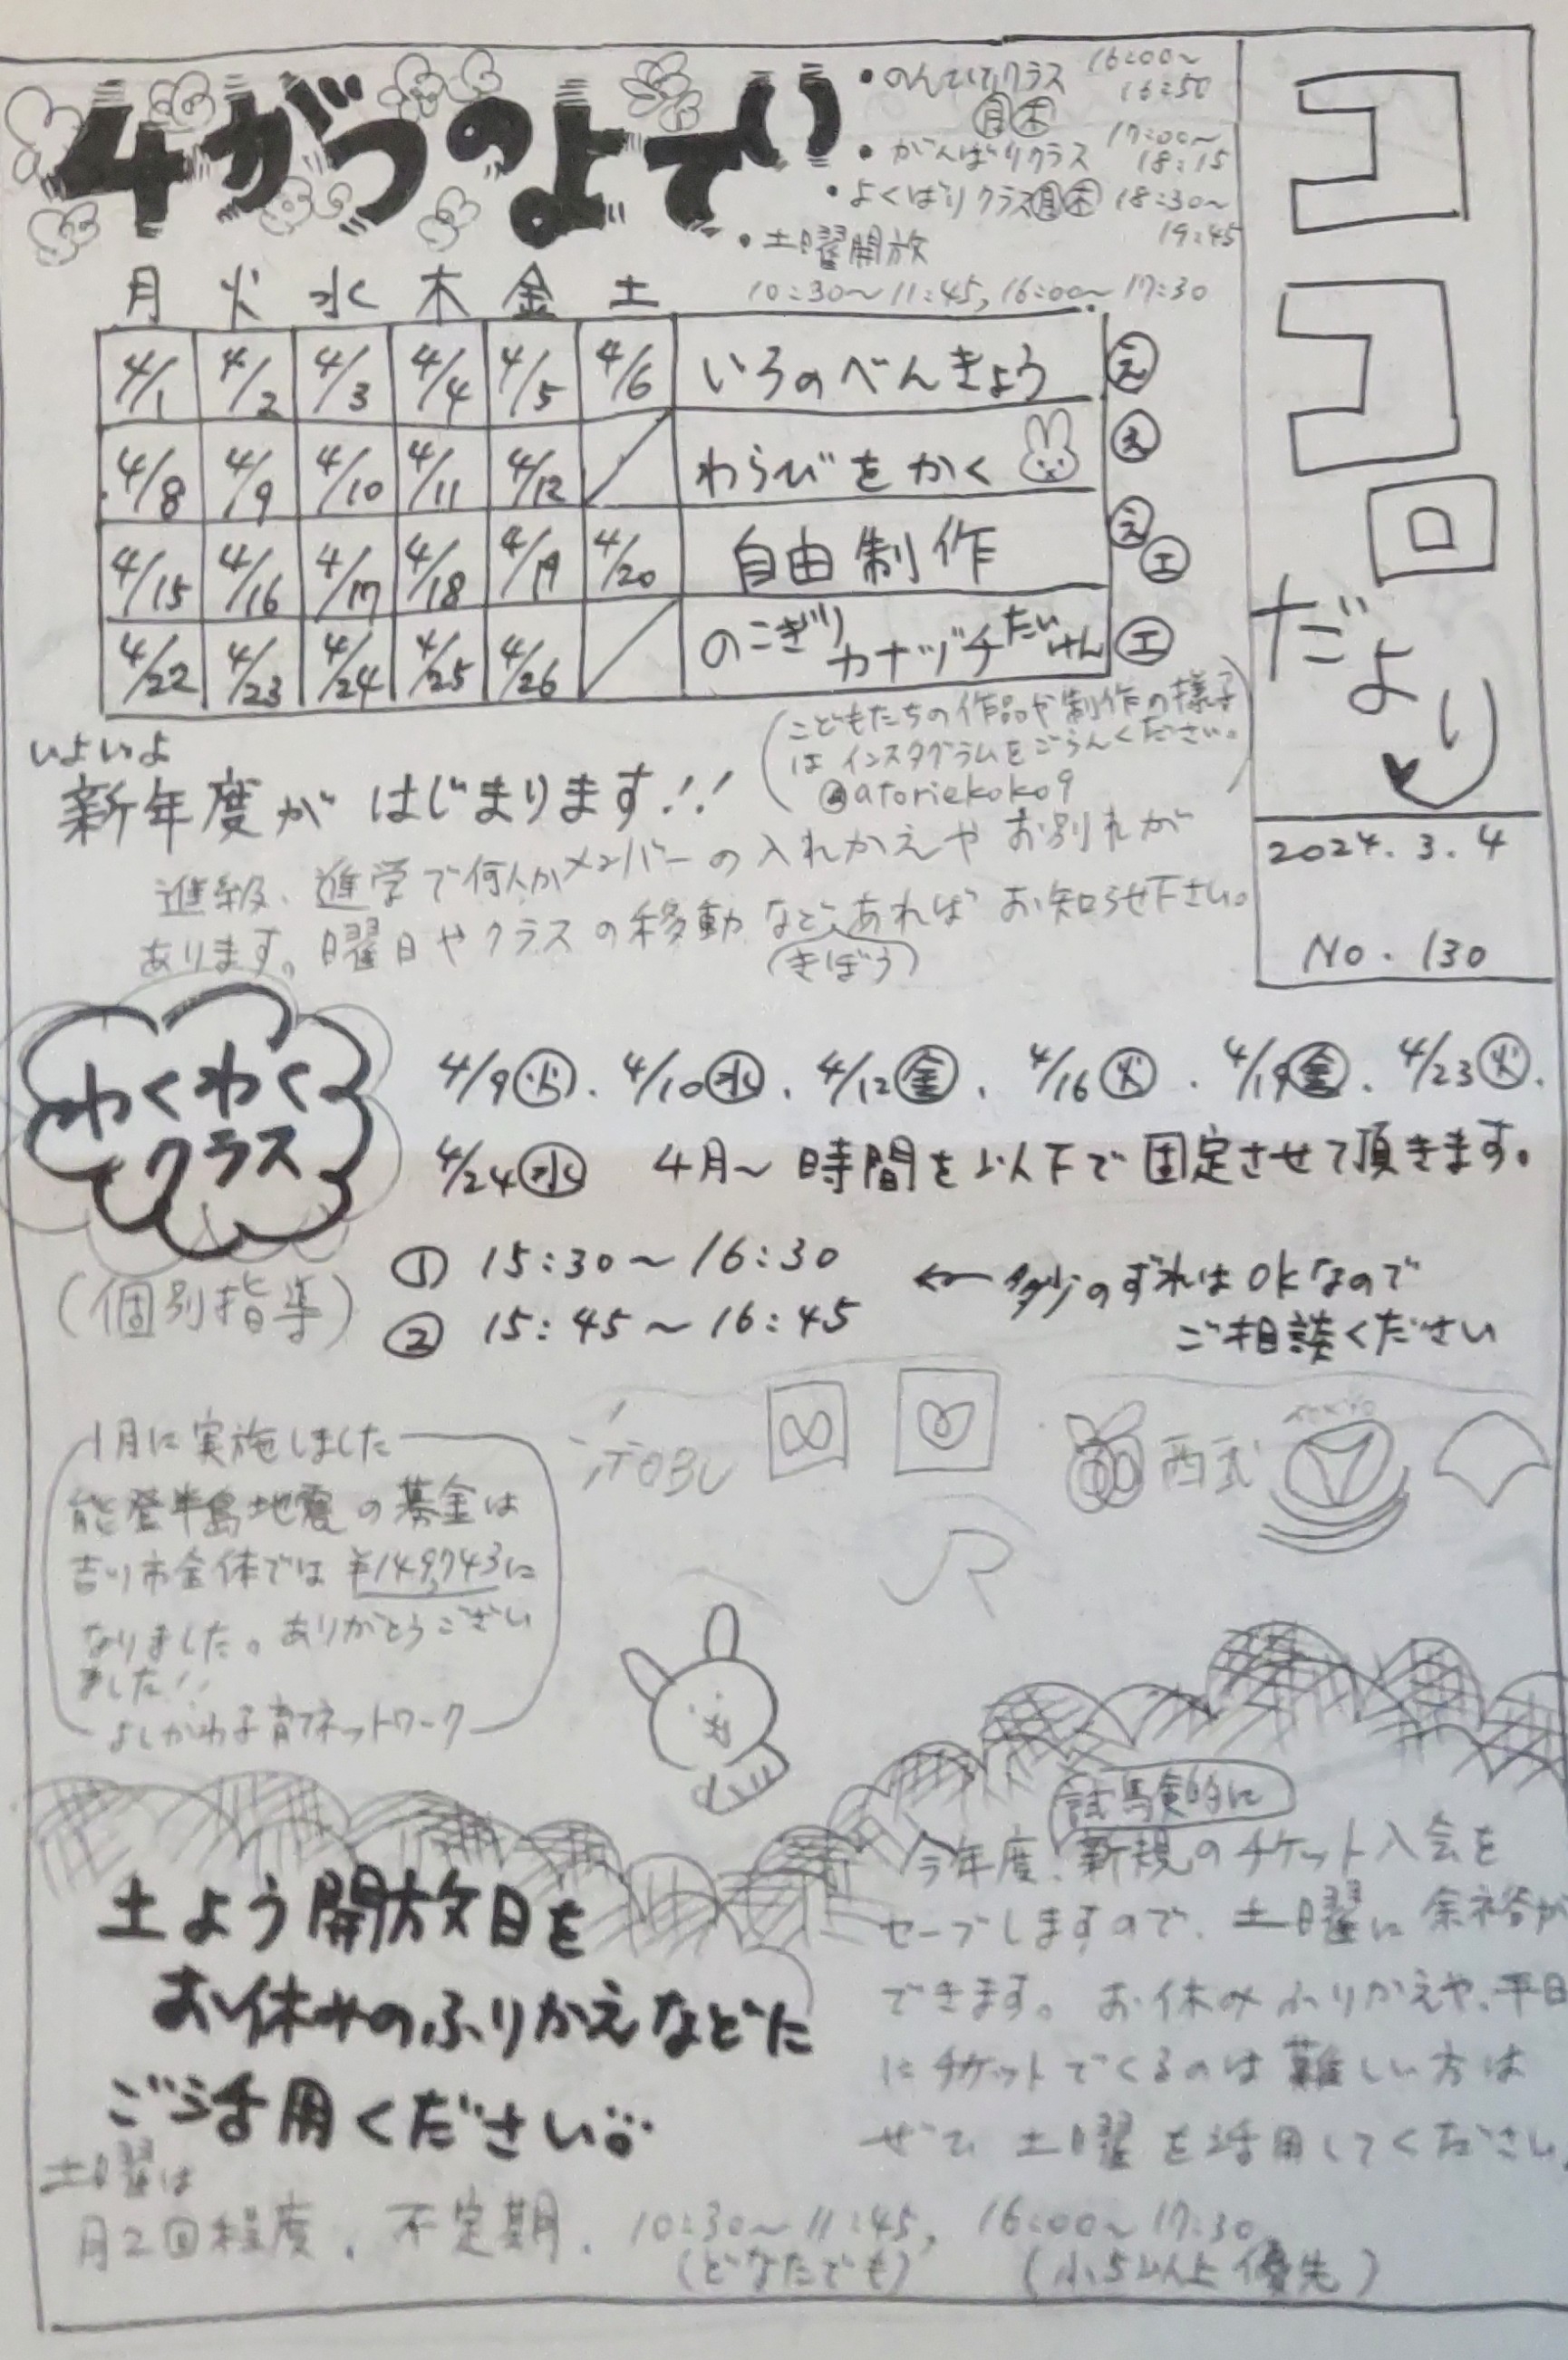 4がつのよてい
・のんびりクラス 16:00~16:50
月 木
・がんばりクラス 17:00~18:15
・よくばりクラス 月 木 18:30~19:45
・土曜開放
10:30~11:45, 16:00~17:30
ココロ
だより
2024.3.4
No.130
月 火 水 木 金 土
4/1 4/2 4/3 4/4 4/5 4/6 いろのべんきょう え
4/8 4/9 4/10 4/11 4/12 わらびをかく え
4/15 4/16 4/17 4/18 4/19 4/20 自由制作 え 工
4/22 4/23 4/24 4/25 4/26 のこぎりカナヅチたいけん 工
(こどもたちの作品や制作の様子
はインスタグラムをごらんください。
@atoriekoko9)
いよいよ
新年度がはじまります!!
進級、進学で何人かメンバーの入れかえやお別れが
あります。曜日やクラスの移動など、あればお知らせ下さい。
(きぼう)
わくわく
クラス
(個別指導)
4/9火、4/10水、4/12金、4/16火、4/19金、4/23火、
4/24水 4月~時間を以下で固定させて頂きます。
① 15:30~16:30
② 15:45~16:45
←多少のずれはOKなので
ご相談ください
1月に実施しました
能登半島地震の募金は
吉川市全体では¥149,743に
なりました。ありがとうござい
ました!!
よしかわ子育てネットワーク
TOBU
西武
JR
土よう開放日を
お休みのふりかえなどに
ご活用ください。
試験的に
今年度、新規のチケット入会を
セーブしますので、土曜に余裕が
できます。お休みふりかえや、平日
にチケットでくるのは難しい方は
ぜひ土曜を活用してください。
土曜は
月2回程度、不定期、10:30~11:45, 16:00~17:30
(どなたでも) (小5以上優先)